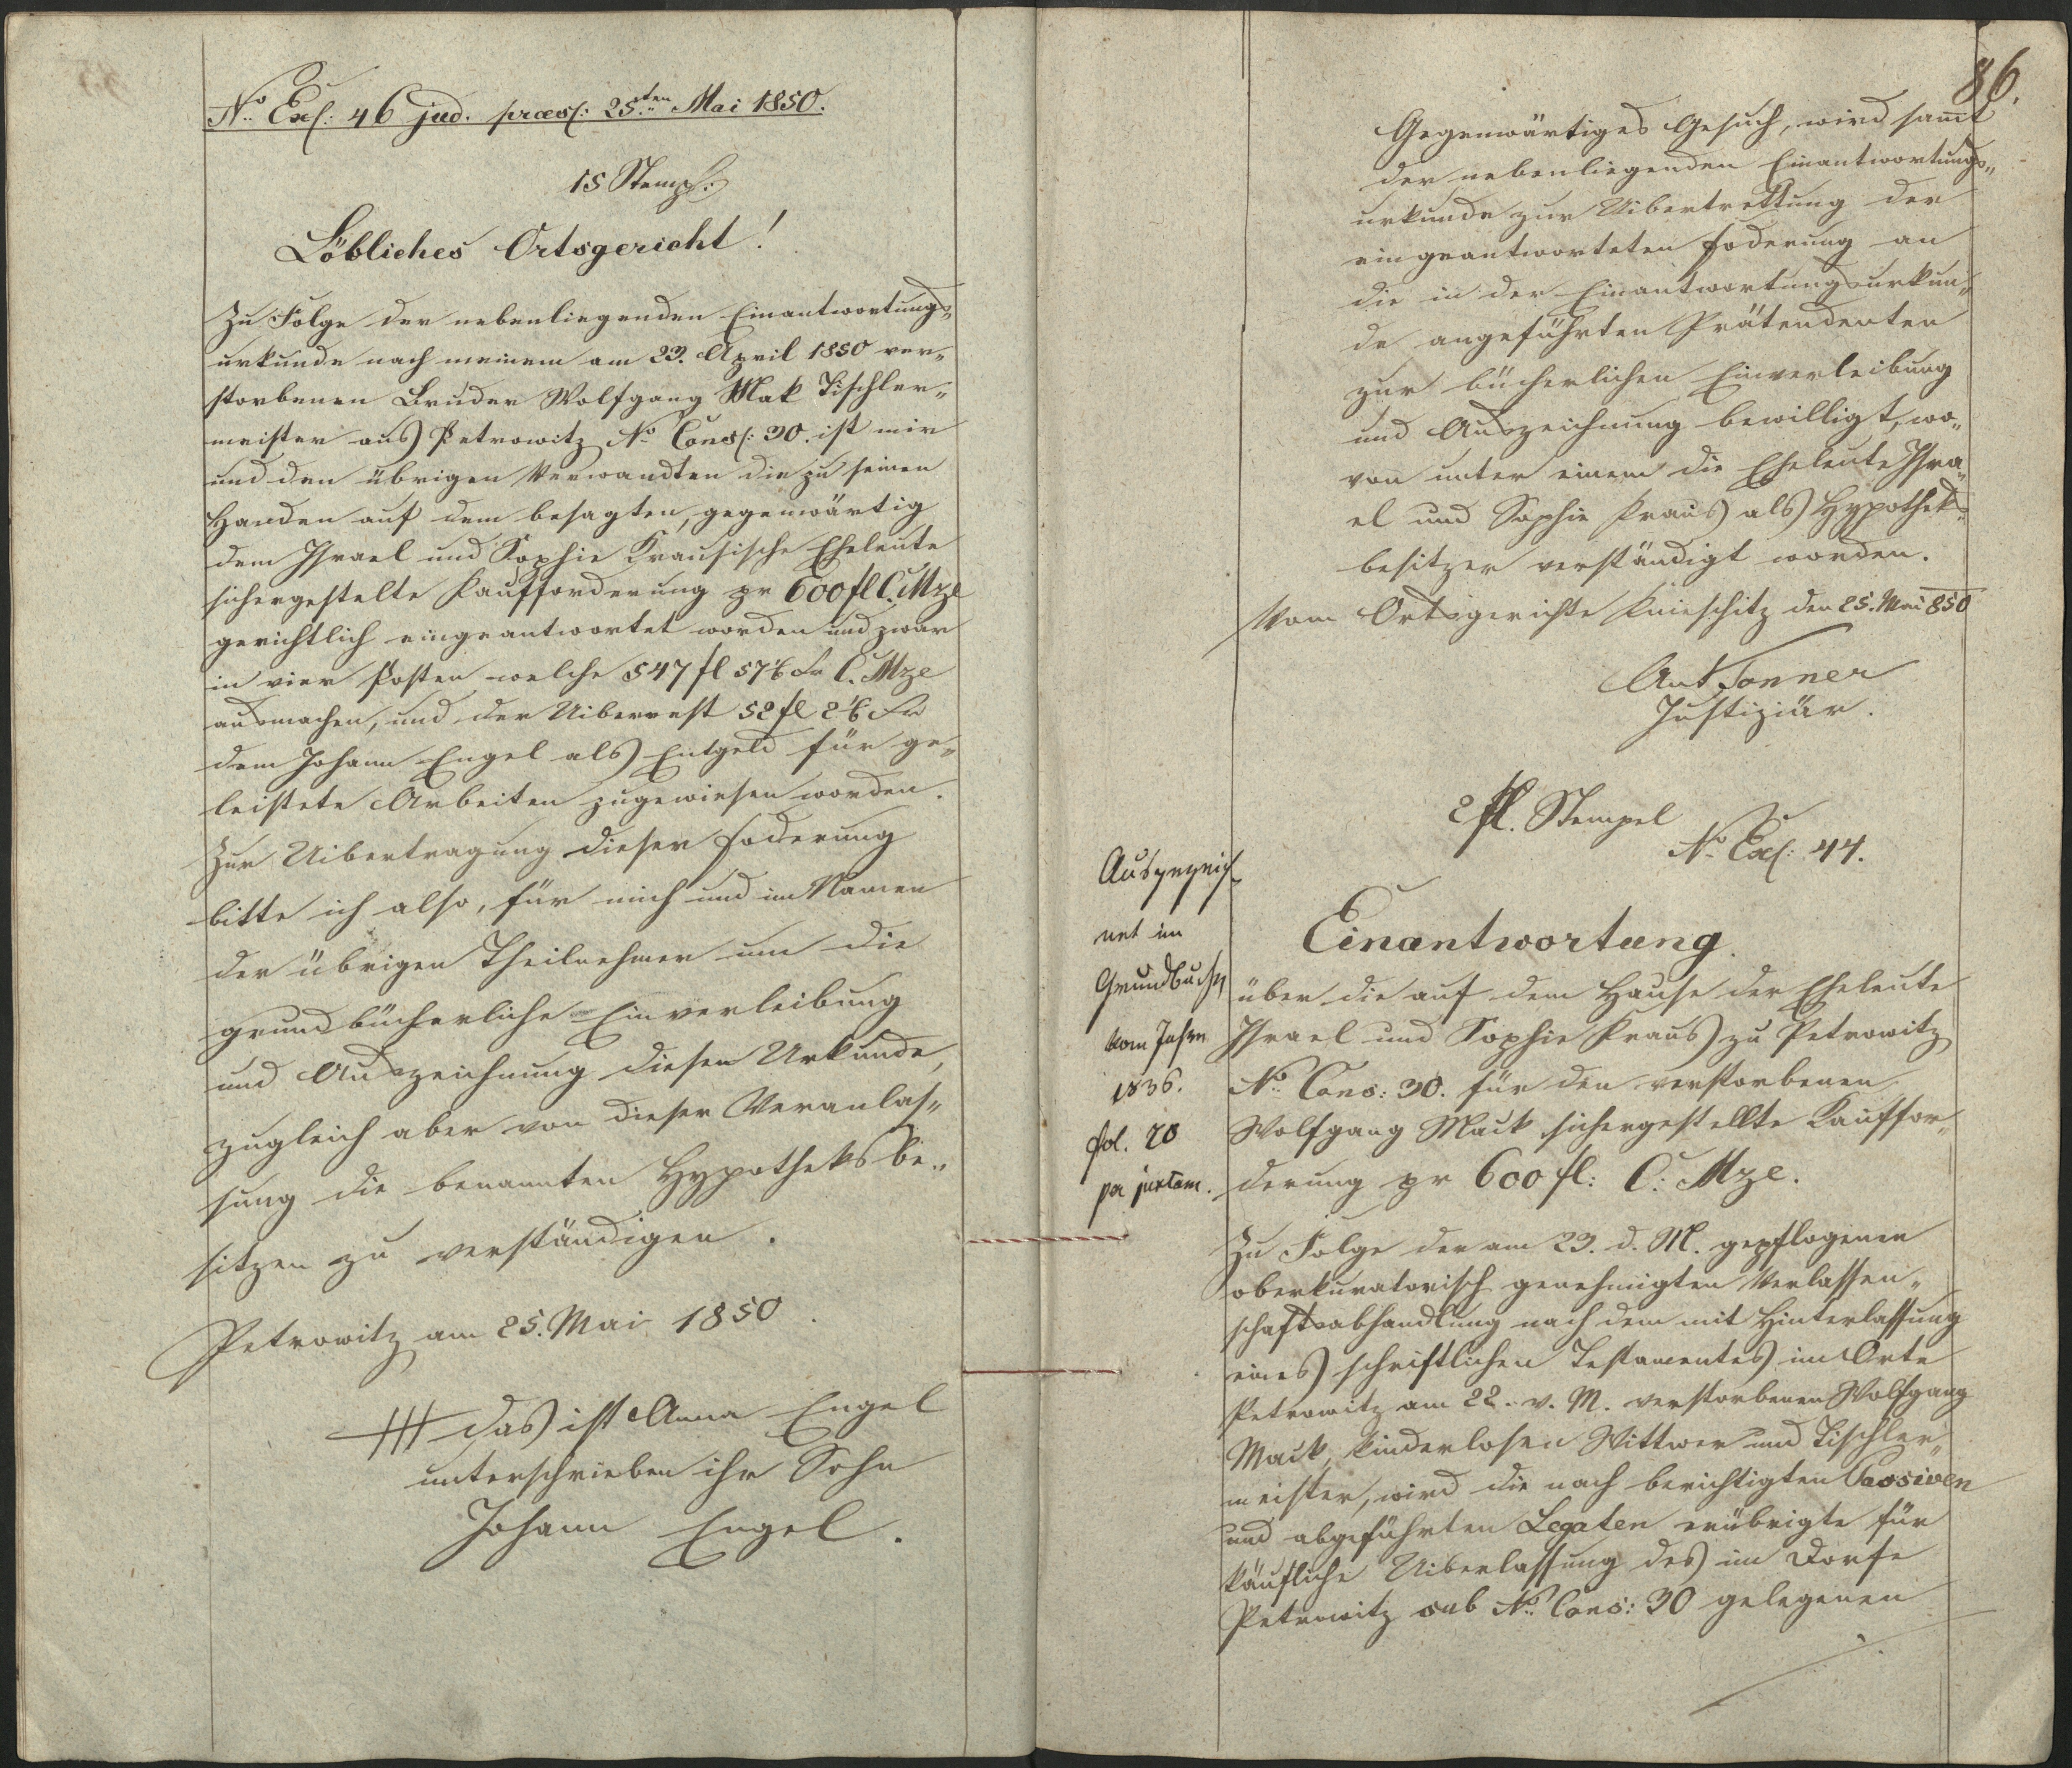 No Ex: 46 jud. praes: 25.ten Mai 1850.
15 Stemp:
Löbliches Ortsgericht!
Zu Folge der nebenliegenden Einantwortungs„
urkunde nach meinem am 23. April 1850 ver„
storbenen Bruder Wolfgang Mak Tischler„
meister aus Petrowitz No Cons: 30. ist mir
und den übrigen Verwandten die zu seinen
Handen auf dem besagten, gegenwärtig
dem Israel und Sophie Krausische Eheleute
sichergestelte Kaufforderung pr 600 fl C. Mze
gerichtlich eingeantwortet worden und zwar
in vier Posten welche 547 fl 57 Kr C. Mze
ausmachen, und der Uiberrest 52 fl 2 Kr
dem Johann Engel als Entgeld für ge„
leistete Arbeiten zugewiesen worden.
Zur Uibertragung dieser Foderung
bitte ich also, für mich und im Namen
der übrigen Theilnehmer um die
grundbücherliche Einverleibung
und Auszeichnung dieser Urkunde,
zugleich aber von dieser Veranlas„
sung die benannten Hypotheksbe„
sitzer zu verständigen.
Petrowitz am 25. Mai 1850.
+++ das ist Anna Engel
unterschrieben ihr Sohn
Johann Engel.
86.
Gegenwärtiges Gesuch, wird sammt
der nebenliegenden Einantwortungs„
urkunde zur Uibertrettung der
eingeantworteten Foderung an
die in der Einantwortungsurkun„
de angeführten Prätendenten
zur bücherlichen Einverleibung
und Auszeichnung bewilligt, wo„
von unter einem die Eheleute Isra„
el und Sophie Kraus als Hypotheks„
besitzer verständigt worden.
Vom Ortsgerichte Knieschitz den 25. Mai 850
Ant Tonner
Justiziär.
2 fl. Stempel
No Ex: 44.
Einantwortung.
über die auf dem Hause der Eheleute
Israel und Sophie Kraus zu Petrowitz
No Cons: 30. für den verstorbenen
Wolfgang Mauk sichergestellte Kauffor„
derung pr 600 fl: C: Mze.
Ausgezeich
net im
Grundbuche
vom Jahre
1836.
fol. 20
pa juxtam.
Zu Folge der am 23. d. M. gepflogenen
oberkuratorisch genehmigten Verlassen„
schaftsabhandlung nach dem mit Hinterlassung
eines schriftlichen Testamentes im Orte
Petrowitz am 22. v. M. verstorbenen Wolfgang
Mauk, kinderlosen Wittwer und Tischler„
meister, wird die nach berichtigten Passiven
und abgeführten Legaten erübrigte für
käufliche Uiberlassung des im Dorfe
Petrowitz sub No Cons: 30 gelegenen